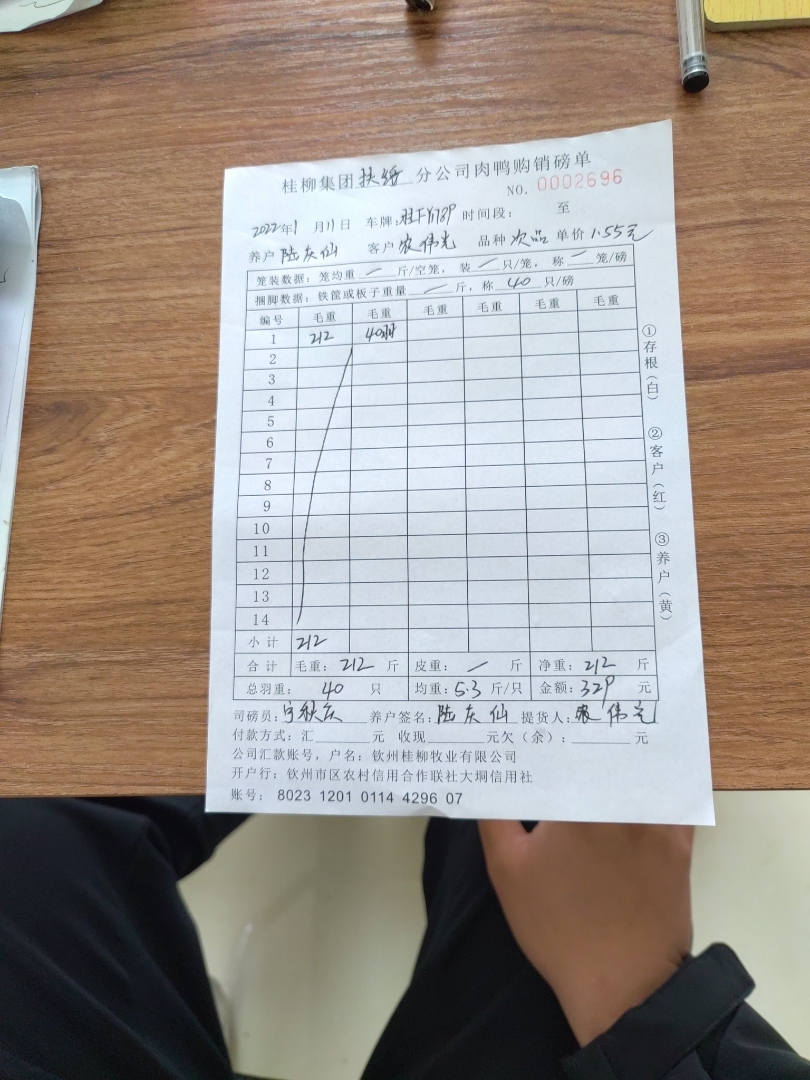 桂柳集团扶绥分公司肉鸭购销磅单
NO. 0002696
2022年1月11日 车牌:桂FY1789 时间段: 至
养户 陆庆仙 客户 农伟光 品种 次品 单价 1.55元
笼装数据: 笼均重 / 斤/空笼, 装 / 只/笼, 称 / 笼/磅
捆脚数据: 铁筐或板子重量 / 斤, 称 40 只/磅
编号 毛重 毛重 毛重 毛重 毛重 毛重
1 212 40羽
2
3
4
5
6
7
8
9
10
11
12
13
14
小计 212
合计 毛重: 212 斤 皮重: / 斤 净重: 212 斤
总羽重: 40 只 均重: 5.3 斤/只 金额: 329 元
司磅员: 宁秋庆 养户签名: 陆庆仙 提货人: 农伟光
付款方式: 汇 元 收现 元欠(余): 元
公司汇款账号, 户名: 钦州桂柳牧业有限公司
开户行: 钦州市区农村信用合作联社大垌信用社
账号: 8023 1201 0114 4296 07
①存根(白)
②客户(红)
③养户(黄)